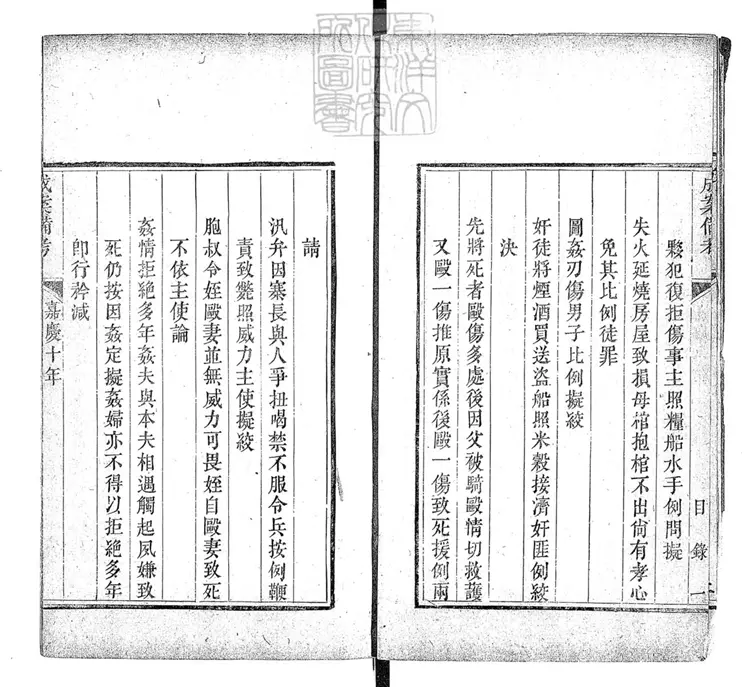 成案備考
目錄
一
夥犯復拒傷事主照糧船水手例問擬
失火延燒房屋致損母棺抱棺不出尙有孝心
免其比例徒罪
圖姦刃傷男子比例擬絞
奸徒將煙酒買送盜船照米穀接濟奸匪例絞
決
先將死者毆傷多處後因父被騎毆情切救護
又毆一傷推原實係後毆一傷致死援例兩
請
汛弁因寨長與人爭扭喝禁不服令兵按例鞭
責致斃照威力主使擬絞
胞叔令姪毆妻並無威力可畏姪自毆妻致死
不依主使論
姦情拒絕多年姦夫與本夫相遇觸起夙嫌致
死仍按因姦定擬姦婦亦不得以拒絕多年
卽行矜減
成案備考
嘉慶十年
東洋文化研究所圖書